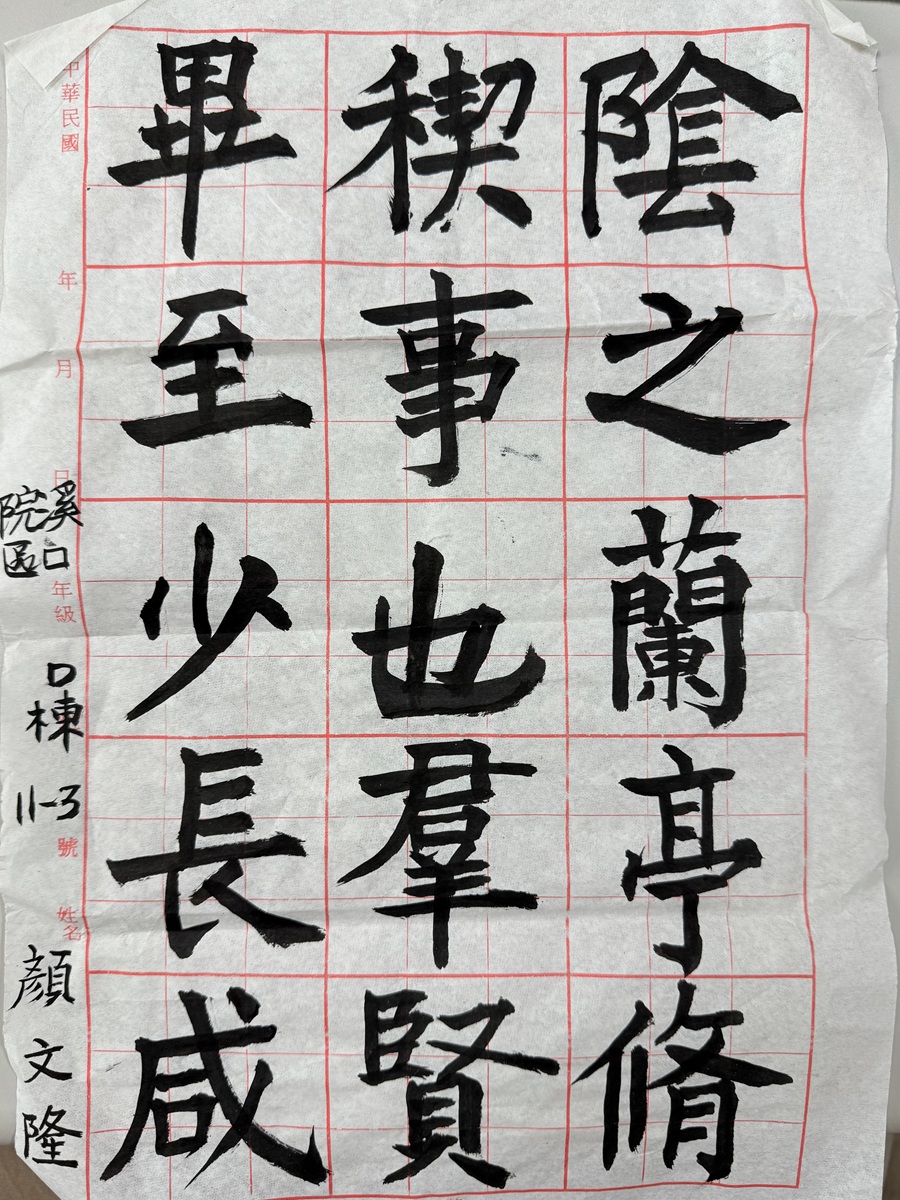 陰之蘭亭脩
稧事也羣賢
畢至少長咸
中華民國 年 月 日
年級 號 姓名
溪口
院區
D棟
11-3
顏文隆